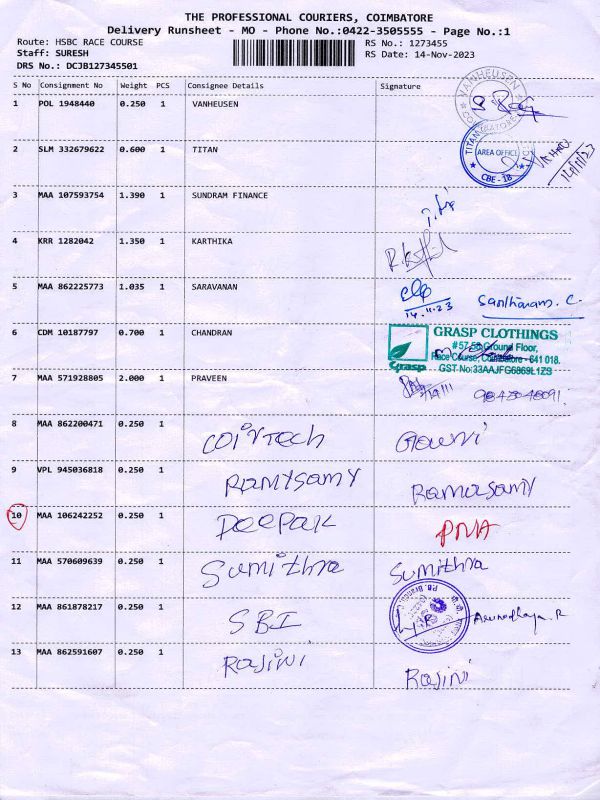 THE PROFESSIONAL COURIERS, COIMBATORE
Delivery Runsheet - MO - Phone No.:0422-3505555 - Page No.:1
Route: HSBC RACE COURSE
RS No.: 1273455
Staff: SURESH
RS Date: 14-Nov-2023
DRS No.: DCJB127345501
S No Consignment No Weight PCS Consignee Details Signature
1 POL 1948440 0.250 1 VANHEUSEN
VANHEUSEN
2 SLM 332679622 0.600 1 TITAN
TITAN
AREA OFFICE
CBE - 18
14/11/23
3 MAA 107593754 1.390 1 SUNDRAM FINANCE
4 KRR 1282042 1.350 1 KARTHIKA
5 MAA 862225773 1.035 1 SARAVANAN
14.11.23 Santhanam. C.
6 CDM 10187797 0.700 1 CHANDRAN
Grasp
GRASP CLOTHINGS
Ground Floor,
Race Course, Coimbatore - 641 018.
GST No:33AAJFG6869L1ZS
7 MAA 571928805 2.000 1 PRAVEEN
8 MAA 862200471 0.250 1 COIRTECH Gowri
9 VPL 945036818 0.250 1 RAMYSAMY Ramasamy
10 MAA 106242252 0.250 1 DEEPAK PNA
11 MAA 570609639 0.250 1 Sumithra Sumithra
12 MAA 861878217 0.250 1 SBI
13 MAA 862591607 0.250 1 Rajini Rajini